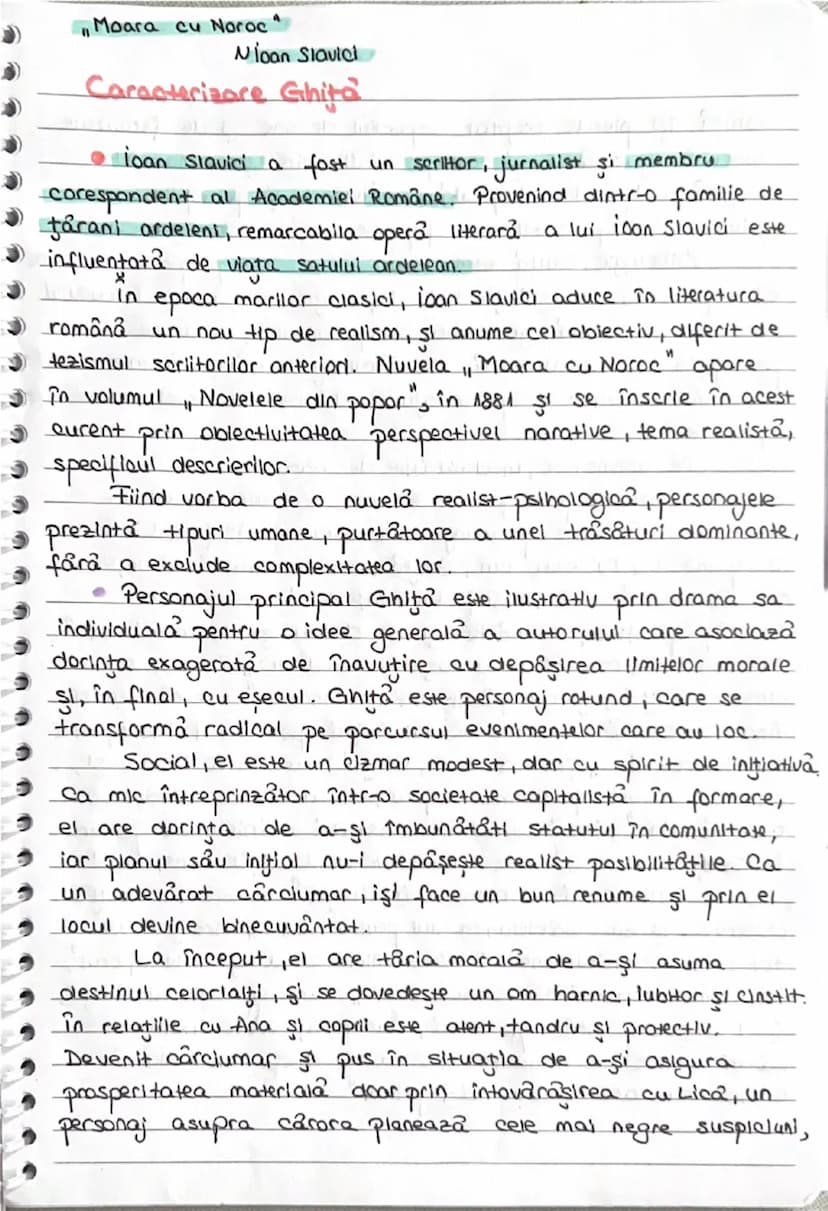 „Moara cu Noroc"
~ Ioan Slavici
Caracterizare Ghiță
• Ioan Slavici a fost un scriitor, jurnalist și membru
corespondent al Academiei Române. Provenind dintr-o familie de
țărani ardeleni, remarcabila operă literară a lui Ioan Slavici este
influențată de viața satului ardelean.
În epoca marilor clasici, Ioan Slavici aduce în literatura
română un nou tip de realism, și anume cel obiectiv, diferit de
tezismul scriitorilor anteriori. Nuvela „Moara cu Noroc" apare
în volumul „Novelele din popor", în 1881 și se înscrie în acest
curent prin obiectivitatea perspectivei narative, tema realistă,
specificul descrierilor.
Fiind vorba de o nuvelă realist-psihologică, personajele
prezintă tipuri umane, purtătoare a unei trăsături dominante,
fără a exclude complexitatea lor.
• Personajul principal Ghiță este ilustrativ prin drama sa
individuală pentru o idee generală a autorului care asociază
dorința exagerată de înavuțire cu depășirea limitelor morale
și, în final, cu eșecul. Ghiță este personaj rotund, care se
transformă radical pe parcursul evenimentelor care au loc.
Social, el este un cizmar modest, dar cu spirit de inițiativă.
Ca mic întreprinzător într-o societate capitalistă în formare,
el are dorința de a-și îmbunătăți statutul în comunitate,
iar planul său inițial nu-i depășește realist posibilitățile. Ca
un adevărat cârciumar, iși face un bun renume și prin el
locul devine binecuvântat.
La început, el are tăria morală de a-și asuma
destinul celorlalți, și se dovedește un om harnic, iubitor și cinstit.
În relațiile cu Ana și copiii este atent, tandru și protectiv.
Devenit cârciumar și pus în situația de a-și asigura
prosperitatea materială doar prin întovărășirea cu Lică, un
personaj asupra cărora planează cele mai negre suspiciuni,